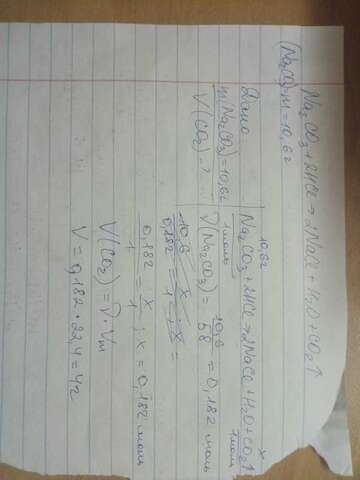 Na₂CO₃ + 2HCl → 2NaCl + H₂O + CO₂↑
(Na₂CO₃) m = 10,6г
Дано
m(Na₂CO₃) = 10,6г
V(CO₂) - ?
10,6г x
Na₂CO₃ + 2HCl → 2NaCl + H₂O + CO₂↑
1моль 1моль
ν(Na₂CO₃) = 10,6/58 = 0,182 моль
0,182/1 = x/1 ; x = 0,182 моль
V(CO₂) = ν · Vm
V = 0,182 · 22,4 = 4г